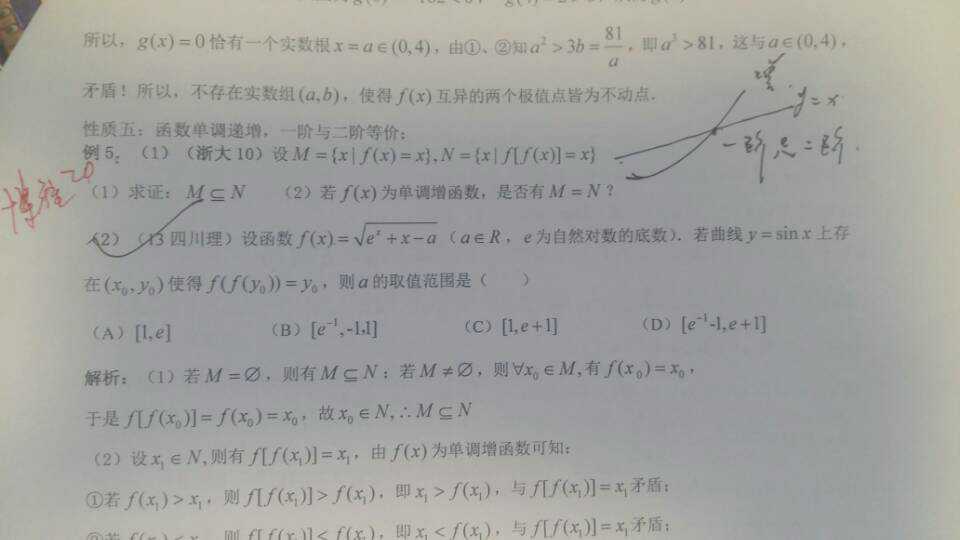 所以，g(x)=0恰有一个实数根x=a∈(0,4)，由①、②知a²>3b=81/a，即a³>81，这与a∈(0,4)，
矛盾！所以，不存在实数组(a,b)，使得f(x)互异的两个极值点皆为不动点.
增
y=x
一阶点=二阶.
性质五：函数单调递增，一阶与二阶等价；
例5：（1）（浙大10）设M={x|f(x)=x},N={x|f[f(x)]=x}
（1）求证：M⊆N （2）若f(x)为单调增函数，是否有M=N？
（2）（13四川理）设函数f(x)=√(eˣ+x-a)（a∈R，e为自然对数的底数）．若曲线y=sin x上存
在(x₀,y₀)使得f(f(y₀))=y₀，则a的取值范围是（ ）
（A）[1,e] （B）[e⁻¹,-1,1] （C）[1,e+1] （D）[e⁻¹-1,e+1]
解析：（1）若M=∅，则有M⊆N；若M≠∅，则∀x₀∈M,有f(x₀)=x₀，
于是f[f(x₀)]=f(x₀)=x₀，故x₀∈N,∴M⊆N
（2）设x₁∈N,则有f[f(x₁)]=x₁，由f(x)为单调增函数可知：
①若f(x₁)>x₁，则f[f(x₁)]>f(x₁)，即x₁>f(x₁)，与f[f(x₁)]=x₁矛盾；
②若f(x₁)<x₁，则f[f(x₁)]<f(x₁)，即x₁<f(x₁)，与f[f(x₁)]=x₁矛盾；